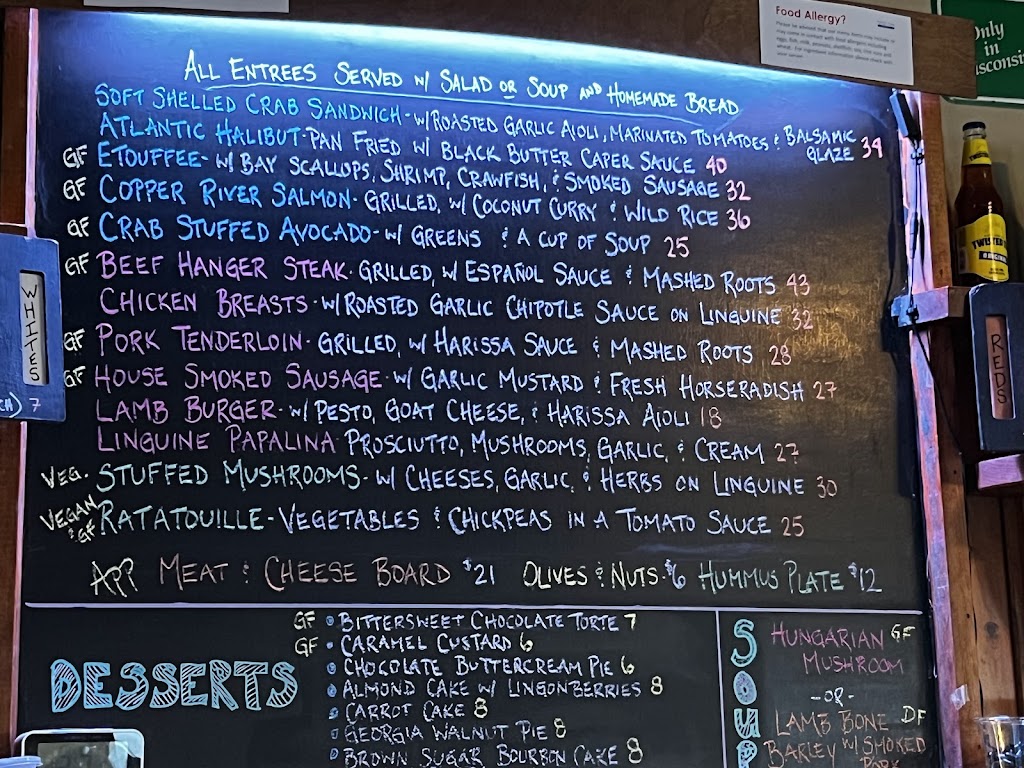 Food Allergy?
Only
in
ALL ENTREES SERVED W/ SALAD OR SOUP AND HOMEMADE BREAD
SOFT SHELLED CRAB SANDWICH - W/ ROASTED GARLIC AIOLI, MARINATED TOMATOES & BALSAMIC
GLAZE 34
ATLANTIC HALIBUT - PAN FRIED W/ BLACK BUTTER CAPER SAUCE 40
GF ETOUFFEE - W/ BAY SCALLOPS, SHRIMP, CRAWFISH, & SMOKED SAUSAGE 32
GF COPPER RIVER SALMON - GRILLED, W/ COCONUT CURRY & WILD RICE 36
GF CRAB STUFFED AVOCADO - W/ GREENS & A CUP OF SOUP 25
GF BEEF HANGER STEAK - GRILLED, W/ ESPAÑOL SAUCE & MASHED ROOTS 43
CHICKEN BREASTS - W/ ROASTED GARLIC CHIPOTLE SAUCE ON LINGUINE 32
GF PORK TENDERLOIN - GRILLED, W/ HARISSA SAUCE & MASHED ROOTS 28
GF HOUSE SMOKED SAUSAGE - W/ GARLIC MUSTARD & FRESH HORSERADISH 27
LAMB BURGER - W/ PESTO, GOAT CHEESE, & HARISSA AIOLI 18
LINGUINE PAPALINA - PROSCIUTTO, MUSHROOMS, GARLIC, & CREAM 27
VEG. STUFFED MUSHROOMS - W/ CHEESES, GARLIC, & HERBS ON LINGUINE 30
VEGAN & GF RATATOUILLE - VEGETABLES & CHICKPEAS IN A TOMATO SAUCE 25
APP MEAT & CHEESE BOARD $21 OLIVES & NUTS - $6 HUMMUS PLATE $12
DESSERTS
GF • BITTERSWEET CHOCOLATE TORTE 7
GF • CARAMEL CUSTARD 6
• CHOCOLATE BUTTERCREAM PIE 6
• ALMOND CAKE W/ LINGONBERRIES 8
• CARROT CAKE 8
• GEORGIA WALNUT PIE 8
• BROWN SUGAR BOURBON CAKE 8
SOUP
HUNGARIAN GF
MUSHROOM
- OR -
LAMB BONE DF
BARLEY W/ SMOKED
PORK
WHITES
7
REDS
TWISTED